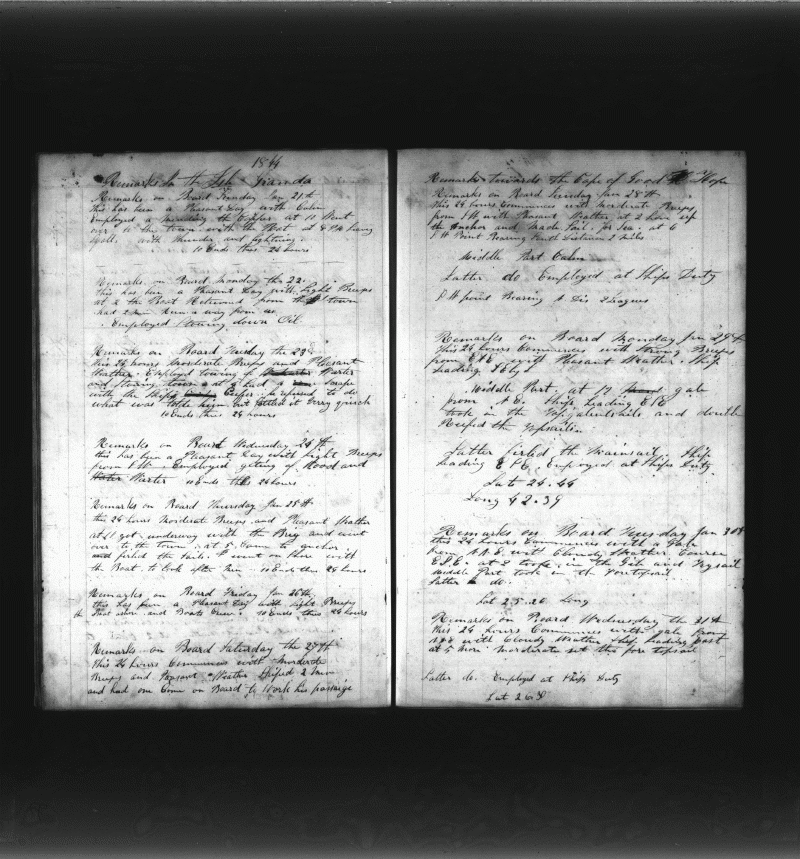 1844
Remarks In the Isle Granda
Remarks on Board Sunday Jan 21st
this has been a Pleasant Day with Calm
Employed a mending the Copper at 11 Went
over to the town with the Boat at 8 PM having
Squall with thunder and lightning
So Ends this 24 hours
Remarks on Board Monday the 22
this has been a Pleasant Day with Light Breeps
at 2 the Boat Returned from the town
had 2 Men Run a way from us
Employed Stowing down Oil
Remarks on Board Tuesday the 23d
this 24 hours Moderate Breeps and Pleasant
Weather Employed towing of Warter
and Stowing down at 4 had a Scrape
with the Ships Cooper he refused to do
what was told him but settled it very quick
So Ends this 24 hours
Remarks on Board Wednesday 24th
this has been a Pleasant Day with Light Breeps
from SW Employed geting of Wood and
Warter So Ends this 24 hours
Remarks on Board Thursday Jan 25th
this 24 hours Moderate Breeps and Pleasant Weather
at 11 got underway with the Brig and went
over to the town at 5 Came to anchor
and ferled the Sails I went on Shore with
the Boat to look after Men So Ends this 24 hours
Remarks on Board Friday Jan 26th
this has been a Pleasant Day with light Breeps
on shore and Boats Crew So Ends this 24 hours
Remarks on Board Saturday the 27th
this 24 hours Commences with Morderate
Breeps and Pleasant Weather Shiped 2 Men
and had one Come on Board to Work his passaige
Remarks towards the Cape of Good Hope
Remarks on Board Sunday Jan 28th
this 24 hours Commences with Morderate Breeps
from SW with Pleasant Weather at 2 hove up
the Anchor and Made Sail for Sea at 6
SW Point Bearing South Distance 2 Miles
Middle Part Calm
Latter do Employed at Ships Duty
SW point Bearing S Dis 2 Leagues
Remarks on Board Monday Jan 29th
this 24 hours Commences with Strong Breeps
from ESE with Pleasant Weather Ship
heading S by E
Middle Part, at 12 gale
from NE Ship heading ESE
took in the topgalentsails and double
Reefed the topsails
Latter ferled the Mainsail Ship
heading ESE Employed at Ships Duty
Lat 24.44
Long 42.39
Remarks on Board Tuesday Jan 30th
this 24 hours Commences with a Gale
from NNE with Cloudy Weather Course
ESE at 2 took in the Gib and trysail
Middle Part took in the foretopsail
Latter do
Lat 25.26 Long
Remarks on Board Wednesday the 31st
this 24 hours Commences with gale from
with Cloudy Weather Ship heading East
at 5 more Morderate set the fore topsail
Latter do Employed at Ships Duty
Lat 26.8